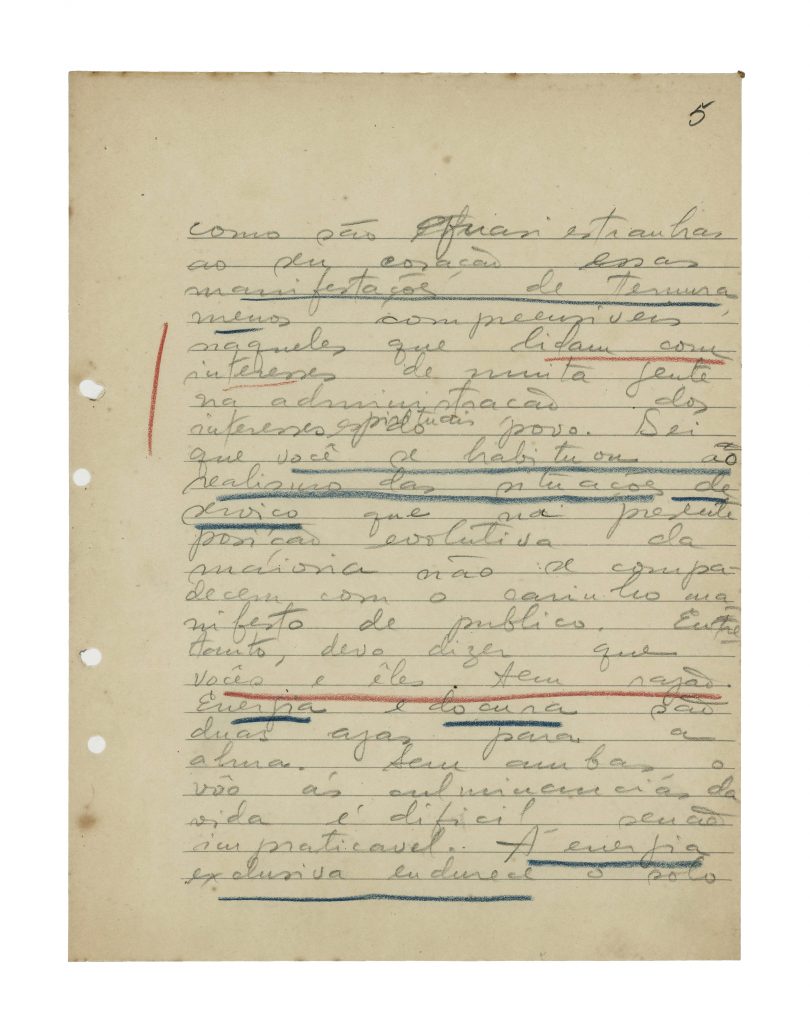 5
como são quasi estranhas
ao seu coração essas
manifestações de ternura
menos compreensiveis
naqueles que lidam com
interesses de muita gente
na administração dos
interesses espirituais do povo. Sei
que você se habituou ao
realismo das situações de
serviço que na presente
posição evolutiva da
maioria não se compa-
decem com o carinho ma
nifesto de publico. Entre
tanto, devo dizer que
vocês e êles tem razão.
Energia e doçura são
duas azas para a
alma. Sem ambas o
vôo ás culminancias da
vida é dificil senão
impraticavel. A energia
exclusiva endurece o solo